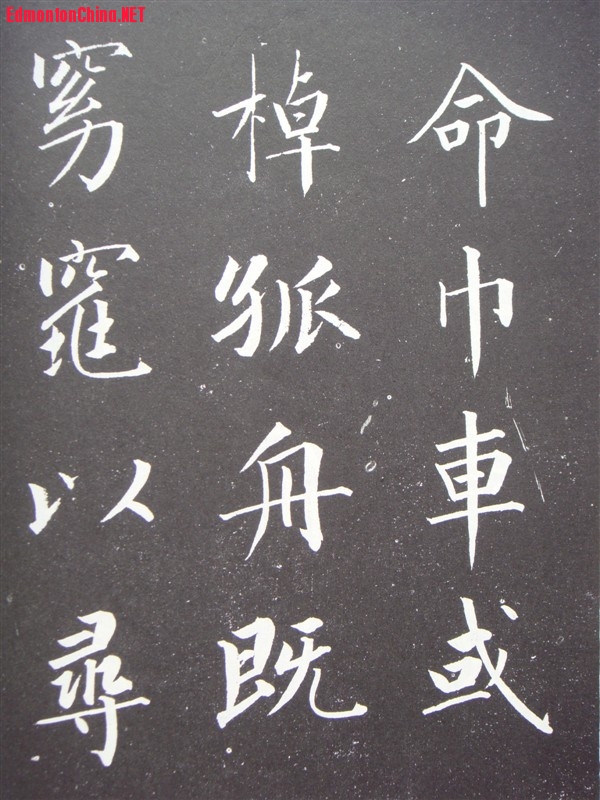 EdmontonChina.NET
命巾車或
棹孤舟既
窈窕以尋